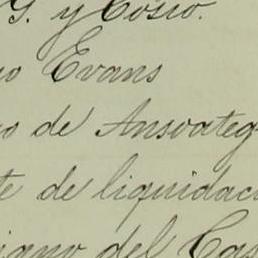 G. y Cosio.
o Evans
o de Ansoateg
te de liquidac
iano del Cas